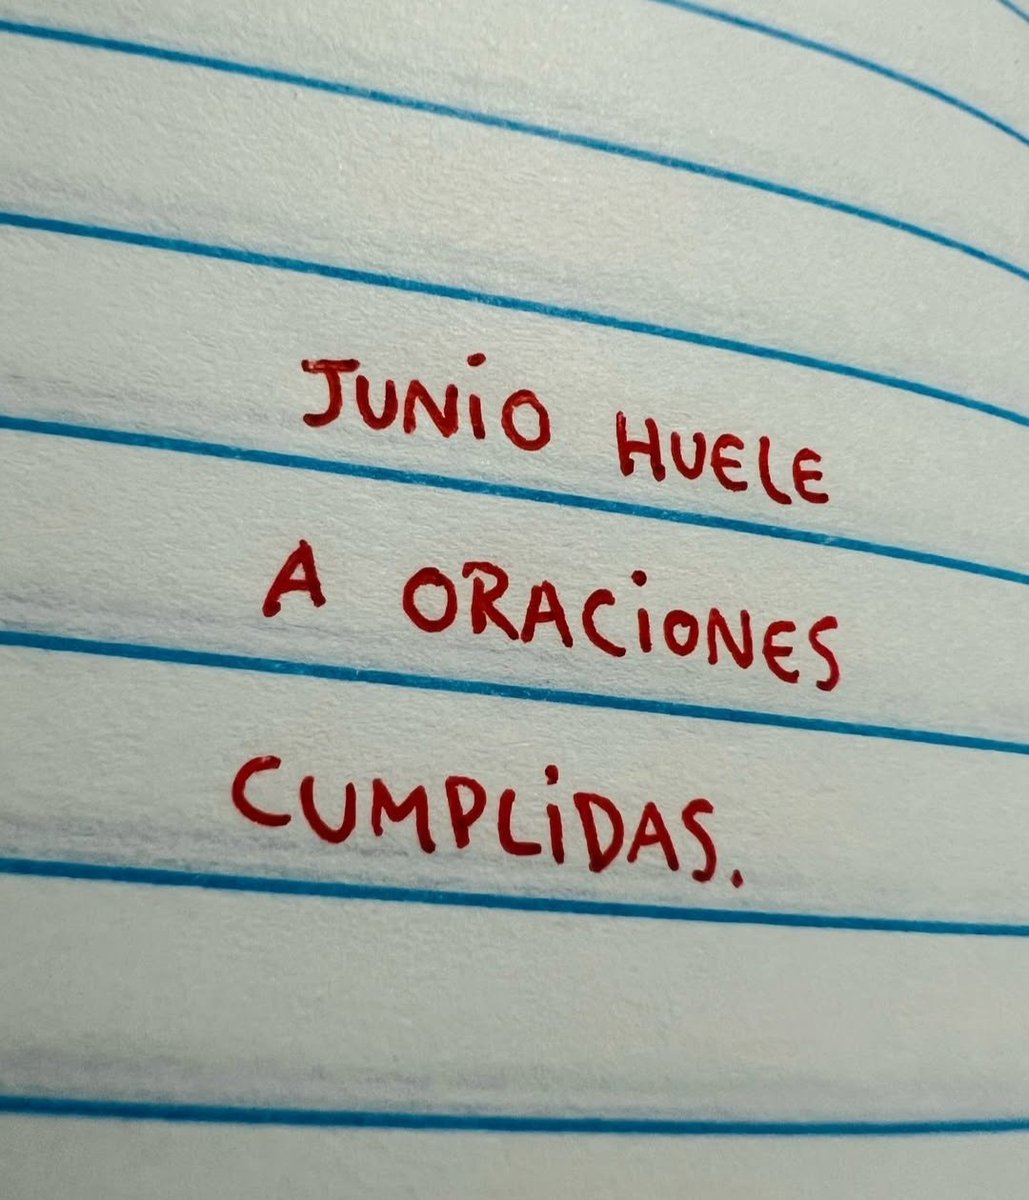 JUNiO HUELE
A ORACiONES
CUMPLiDAS.